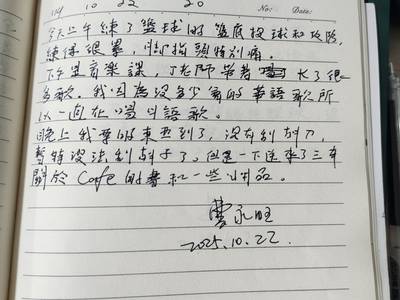 114 10 22 20 No: Date:
今天上午練了籃球的籃底投球和攻防,
練得很累,腳指頭特別痛。
下午是音樂課,老師帶著 K了很
多歌。我因為沒多少會的華語歌所
以一直在唱日語歌。
晚上我買的東西到了,沒有刮鬍刀,
暫時沒法刮鬍子了。但是一下送來了三本
關於 Cafe 的書和一些小商品。
曹永旺
2025.10.22.